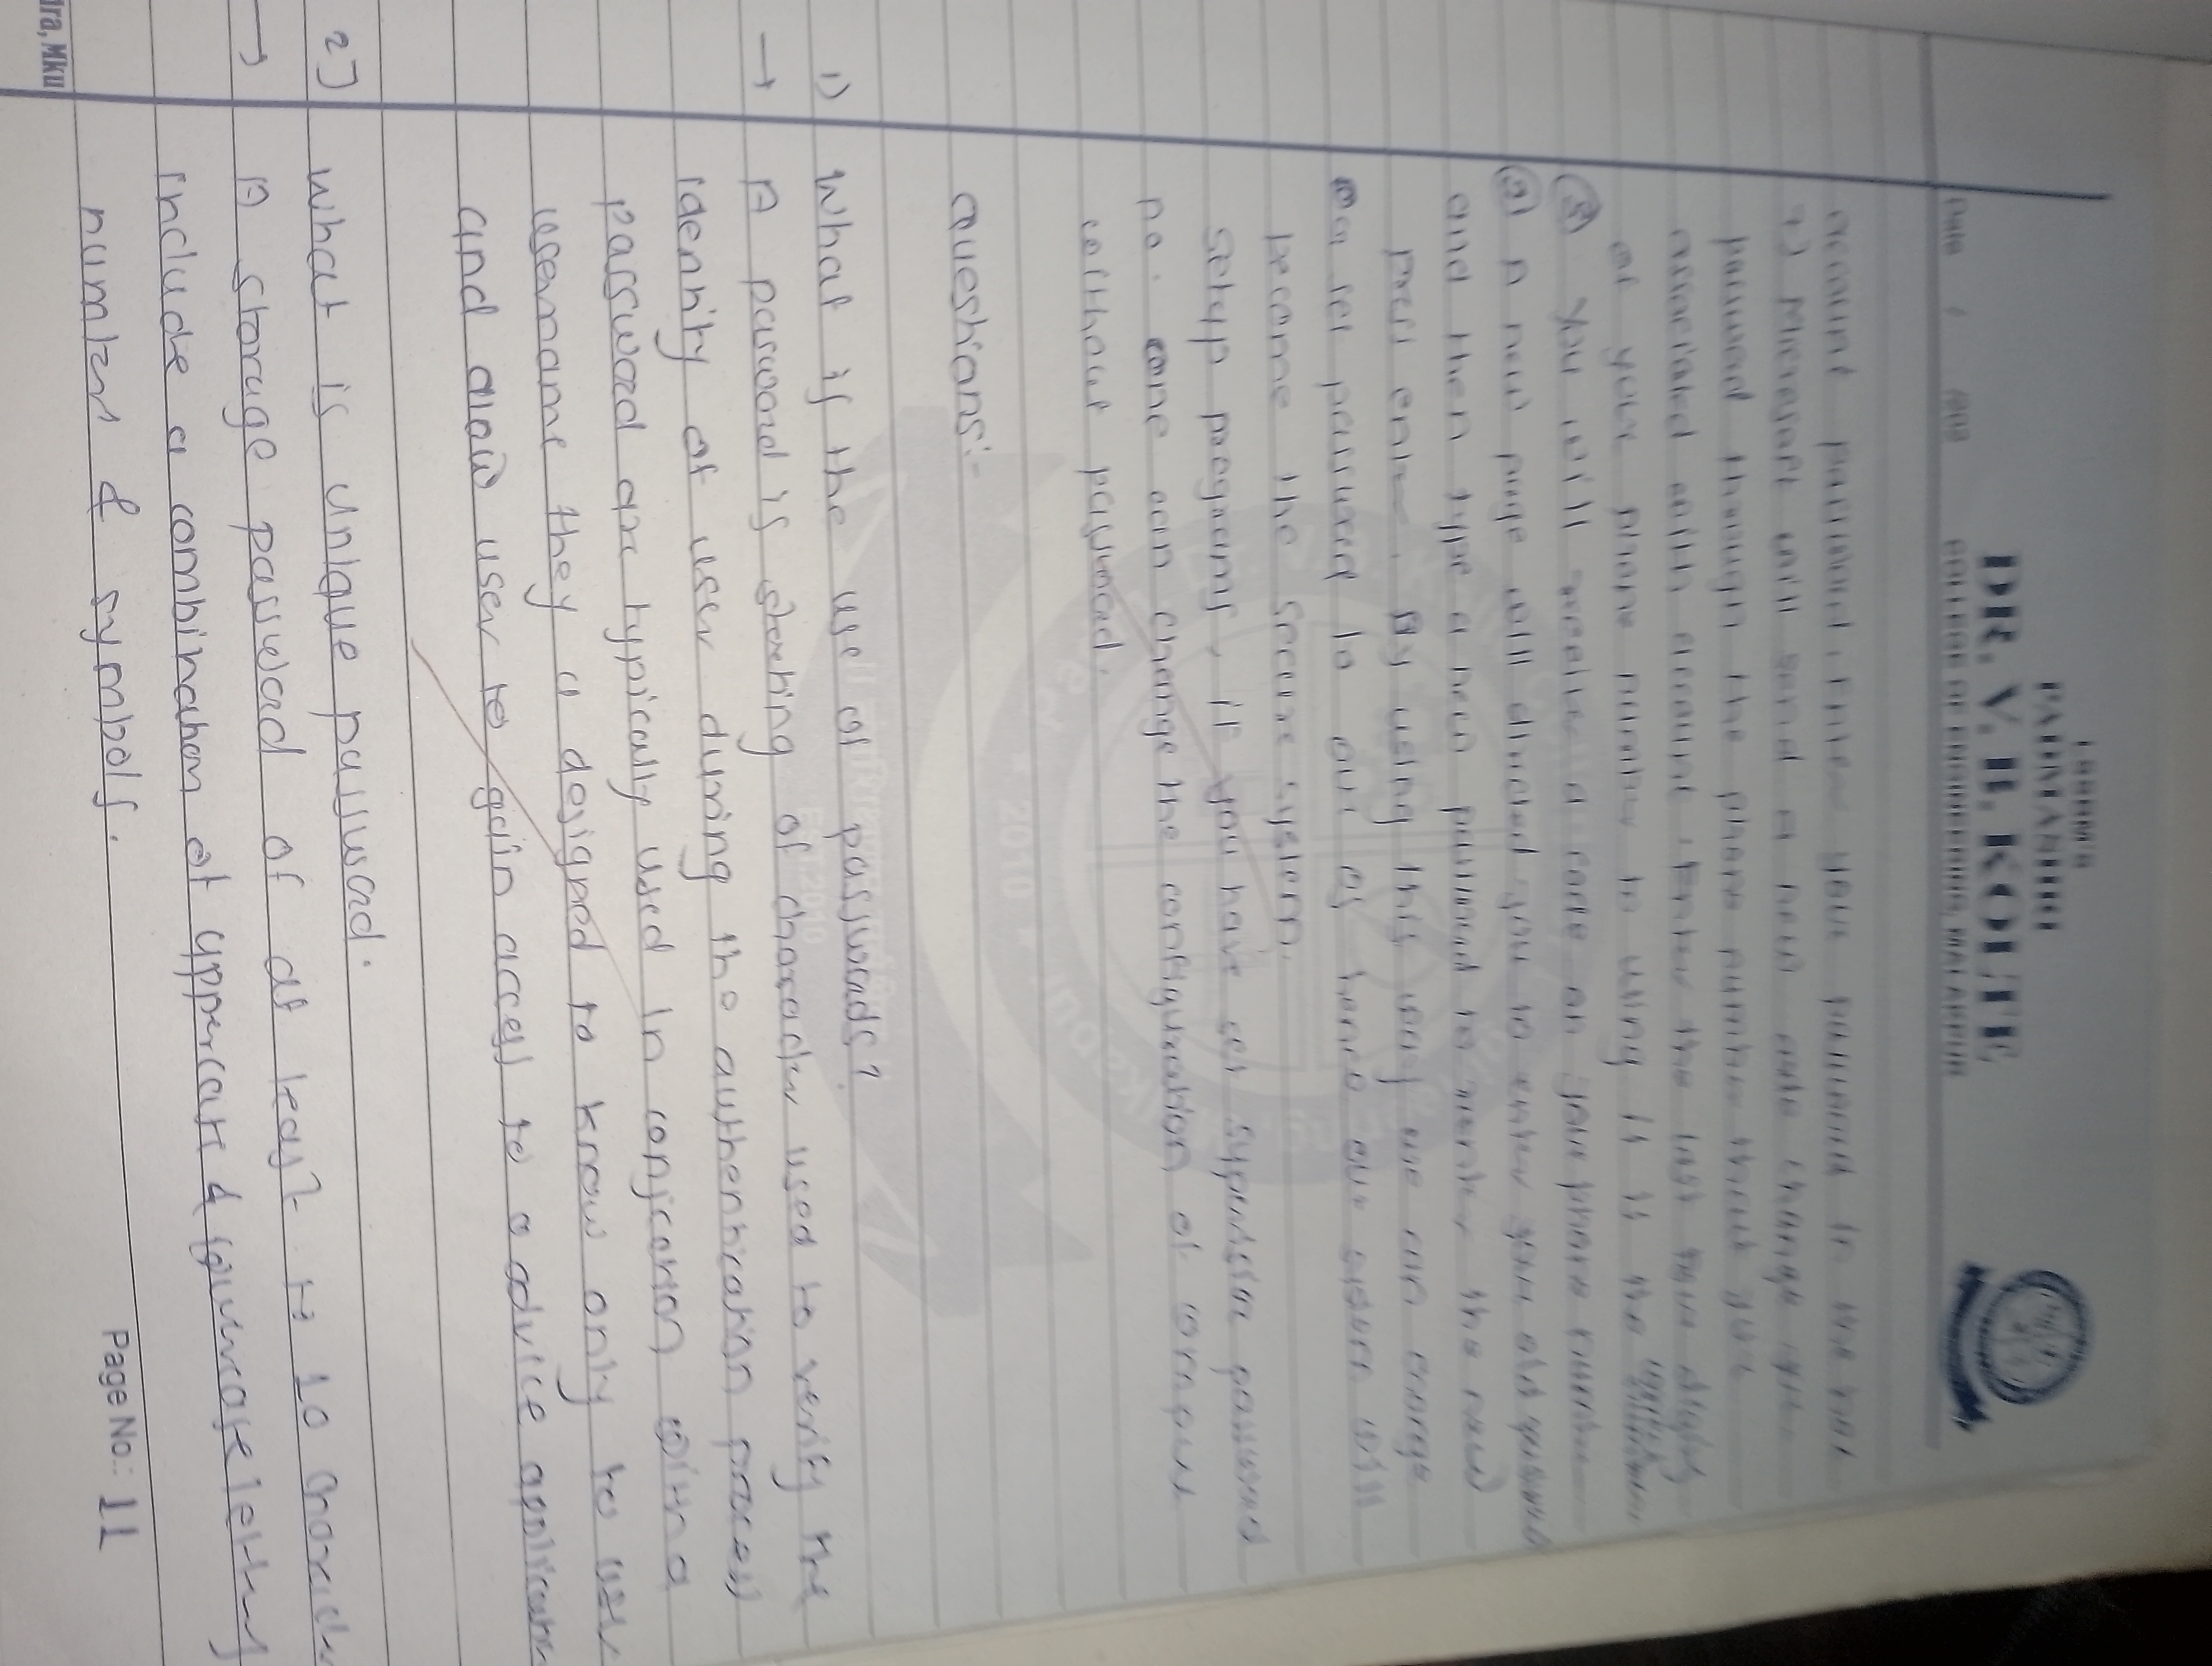 LBBM'S
PADMASHRI
DR. V. B. KOLTE
COLLEGE OF ENGINEERING, MALKAPUR
Date / /202
account password. Enter your password in the box
7) Microsoft will send a new code change your
password through the phone number that you
associated with account. Enter the last four digits
of your phone number to using it is the
⑧ You will receive a code on your phone number
⑨ A new page will directed you to enter your old password
and then type a new password to reenter the new)
press enter. By using this way we can change
or set password to our as hence our system will
become the secure system.
setup programs, if you have set supervisor password
no. one can change the configuration of compuer
without password.
Questions:-
1) What is the use of passwords?
→ A password is string of character used to verify the
identity of user during the authentication process
password are typically used in conjication with a
username they a designed to know only to user
and allow user to gain access to a advice application
2) What is unique password.
→ A storage password of at least to 10 character
include a combination of uppercase & lowercase letters
numbers & symbols.
Page No.: 11
dra, Mku
2010